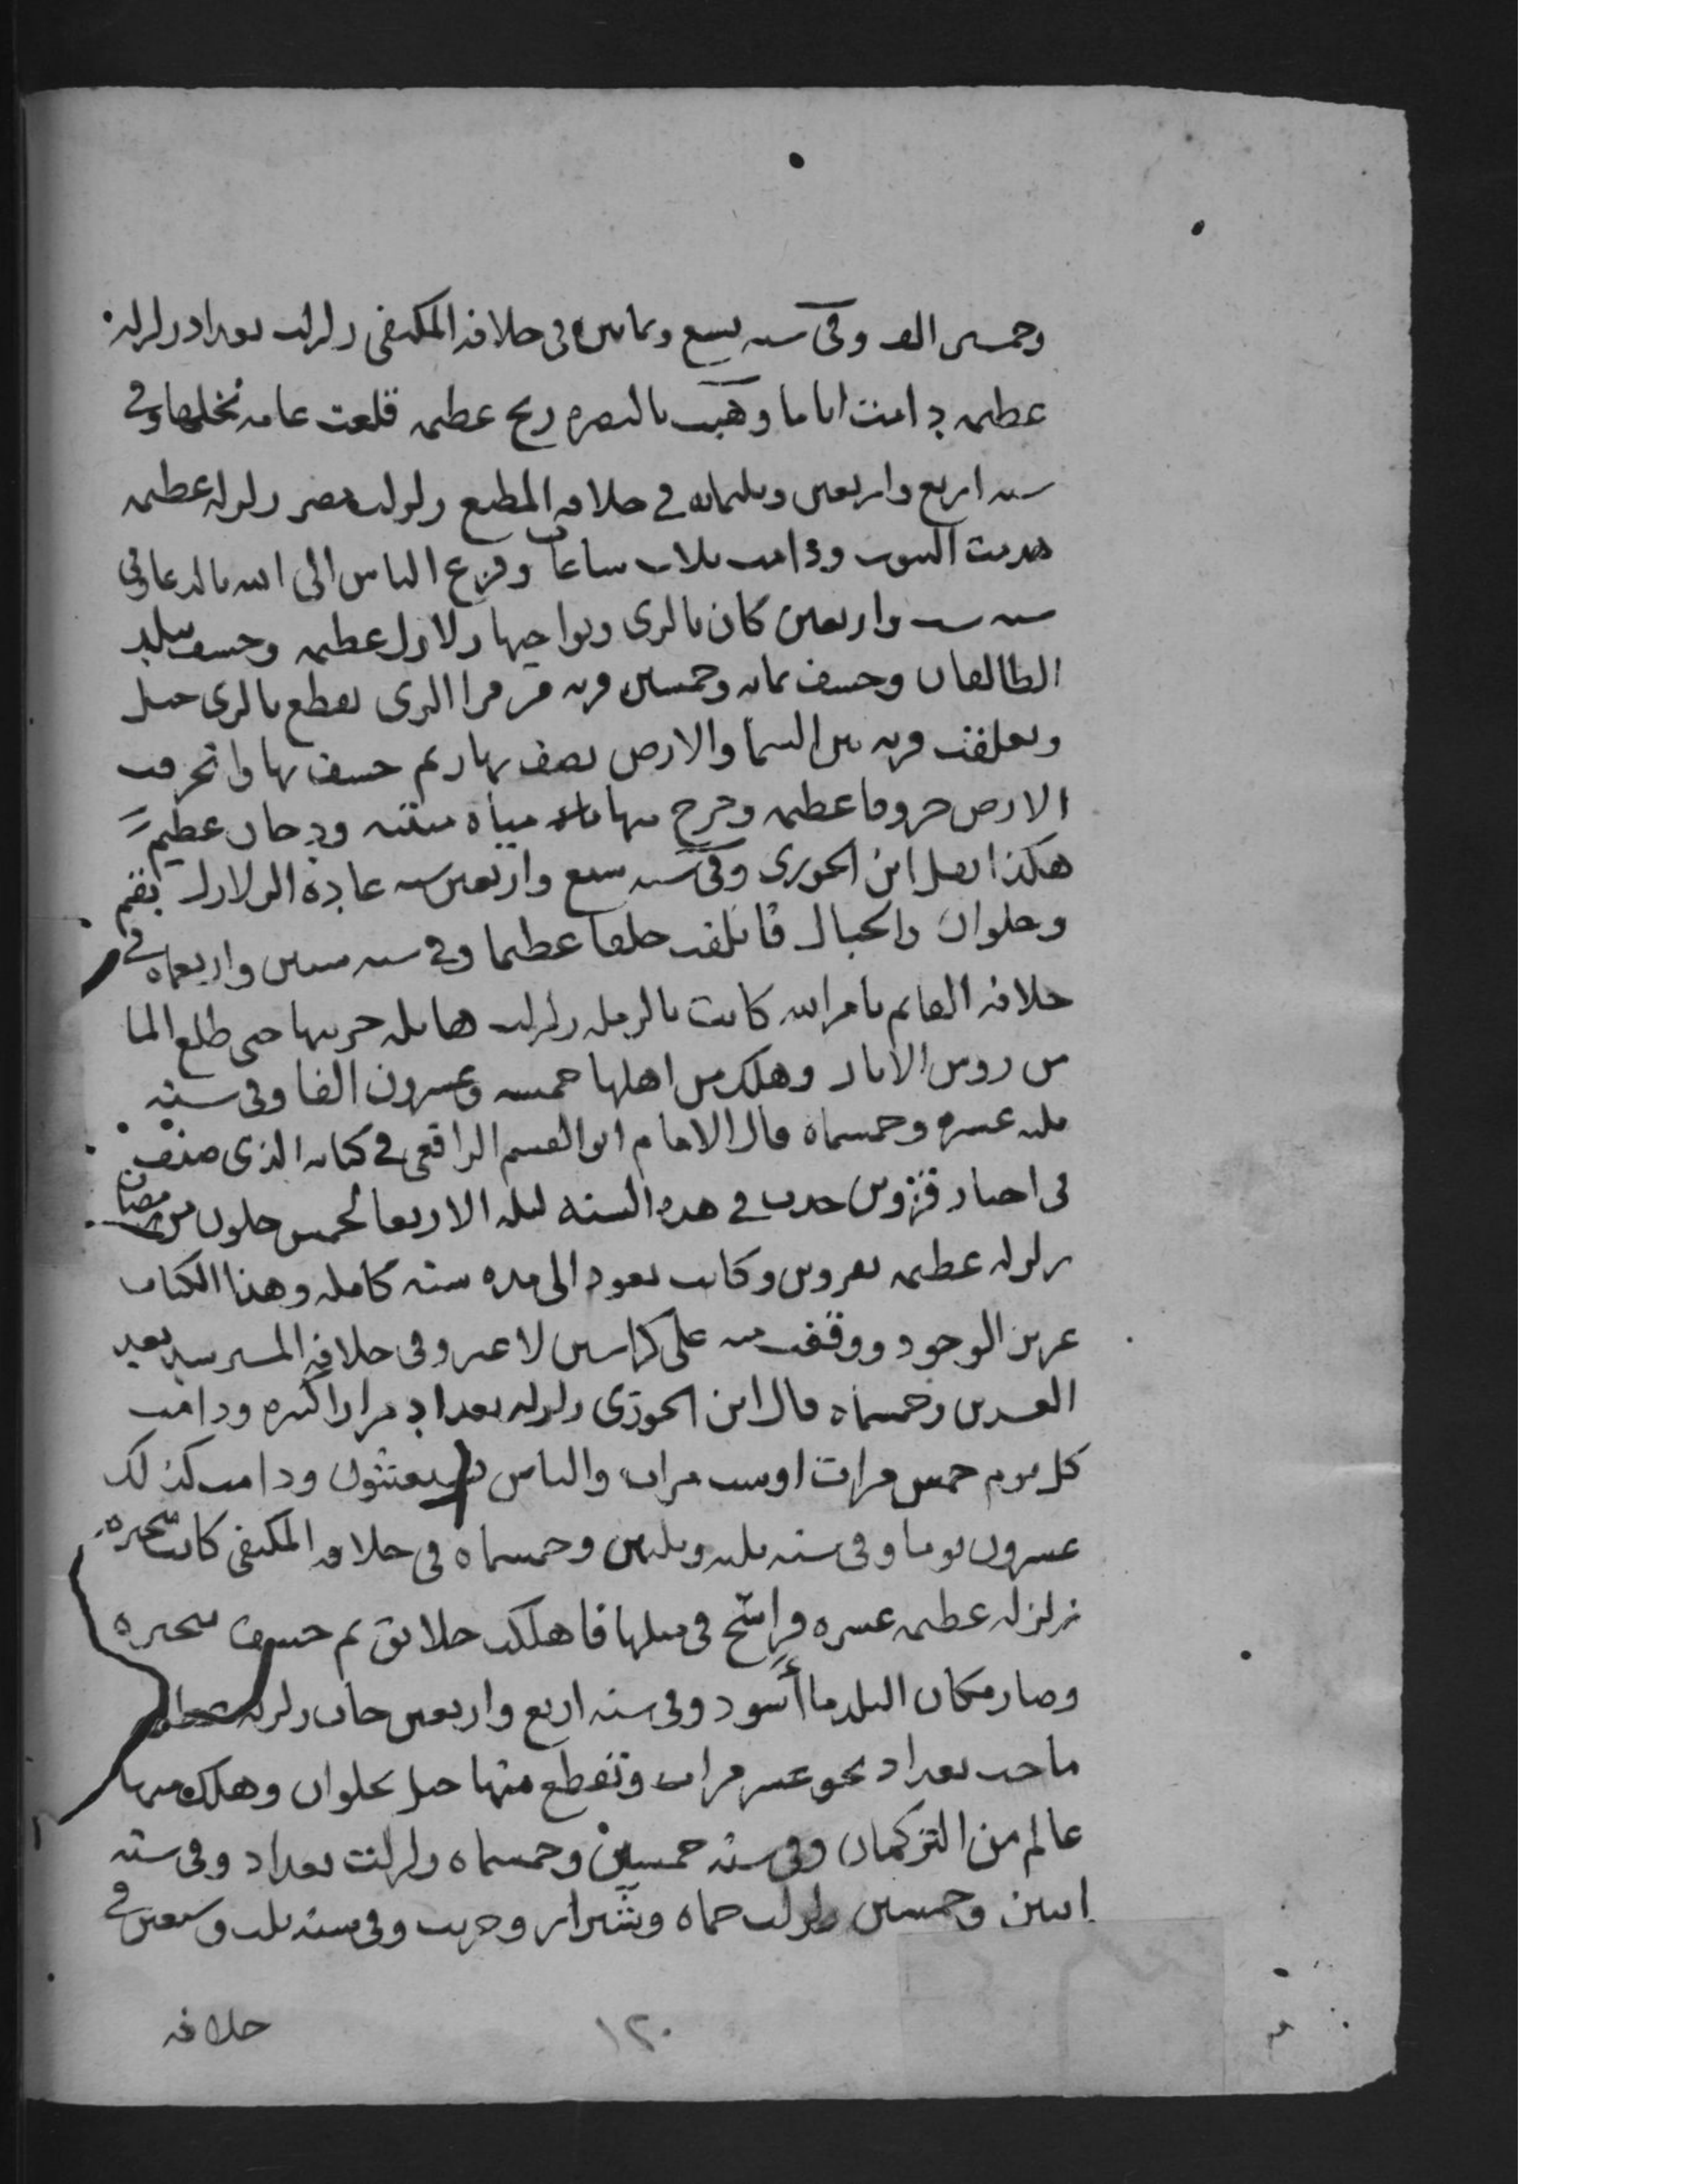 وخمسين الف وفى سنه تسع وثمانين فى خلافة المكتفى زلزلت بغداد زلزله
عظيمه دامت اياما وهبت بالبصره ريح عظيمه قلعت عامه نخلها وفى
سنه اربع واربعين وثلثمائه فى خلافه المطيع زلزلت مصر زلزله عظيمه
هدمت البيوت ودامت ثلاث ساعات وفزع الناس الى الله بالدعا وفى
سنه ست واربعين كان بالرى ونواحيها زلازل عظيمه وخسف ببلد
الطالقان وخسف بمائه وخمسين قريه من قرا الرى تقطع بالرى جبل
وتعلقت قريه بين السما والارض نصف نهار ثم خسف بها وانخرقت
الارض خروقا عظيمه وخرج منها مياه منتنه ودخان عظيم
هكذا نقل ابن الجوزى وفى سنه سبع واربعين عادة الزلازل بقم
وحلوان والجبال فاتلفت خلقا عظيما وفى سنه ستين واربعمائه فى
خلافه القايم بامر الله كانت بالرمله زلزلت هايله خربتها حتى طلع الما
من روس الابار وهلك من اهلها خمسه وعشرون الفا وفى سنة
ثلث عشره وخمسمائه قال الامام ابو القسم الرافعى فى كتابه الذى صنفه
فى اخبار قزوين حدث فى هذه السنه ليله الاربعا لخمس خلون من رمضان
زلزله عظيمه بقزوين وكانت تعود الى مده سنه كامله وهذا الكتاب
عزيز الوجود ووقفت منه على كراسين لا غير وفى خلافه المسترسد بعيد
العشرين وخمسمائه قال ابن الجوزى زلزله بغداد مرارا كثيره ودامت
كل يوم خمس مرات او ست مرات والناس يستغيثون ودامت كذلك
عشرون يوما وفى سنه ثلث وثلثين وخمسمائه فى خلافه المكتفى كانت بحيره
زلزله عظيمه عشره فراسخ فى مثلها فاهلكت خلايق ثم خسف بحيره
وصار مكان البلد ما أسود وفى سنه اربع واربعين جات زلزله
ماجت بغداد نحو عشر مرات وتقطع منها جبل بحلوان وهلك فيها
عالم من التركمان وفى سنه خمسين وخمسمائه زلزلت بغداد وفى سنه
اثنين وخمسين زلزلت حماه وشيراز وخربت وفى سنه ثلث وسبعين فى
١٢٠
خلافه